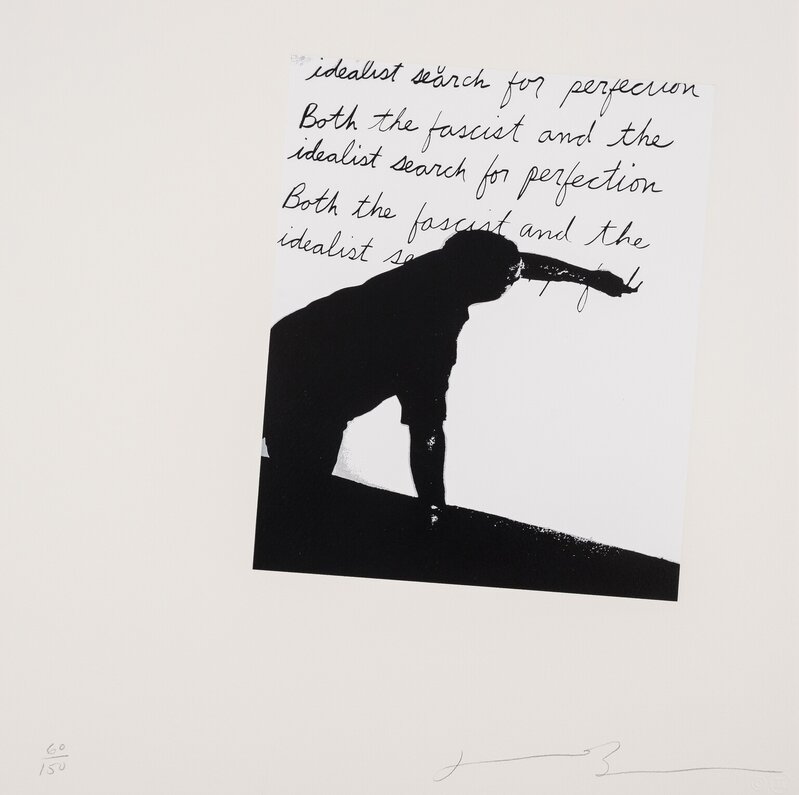 idealist search for perfection
Both the fascist and the
idealist search for perfection
Both the fascist and the
idealist
60
150